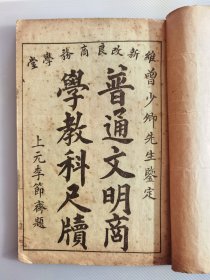 新改良商務學堂
曾少卿先生鑒定
普通文明商
學教科尺牘
上元李節齋題